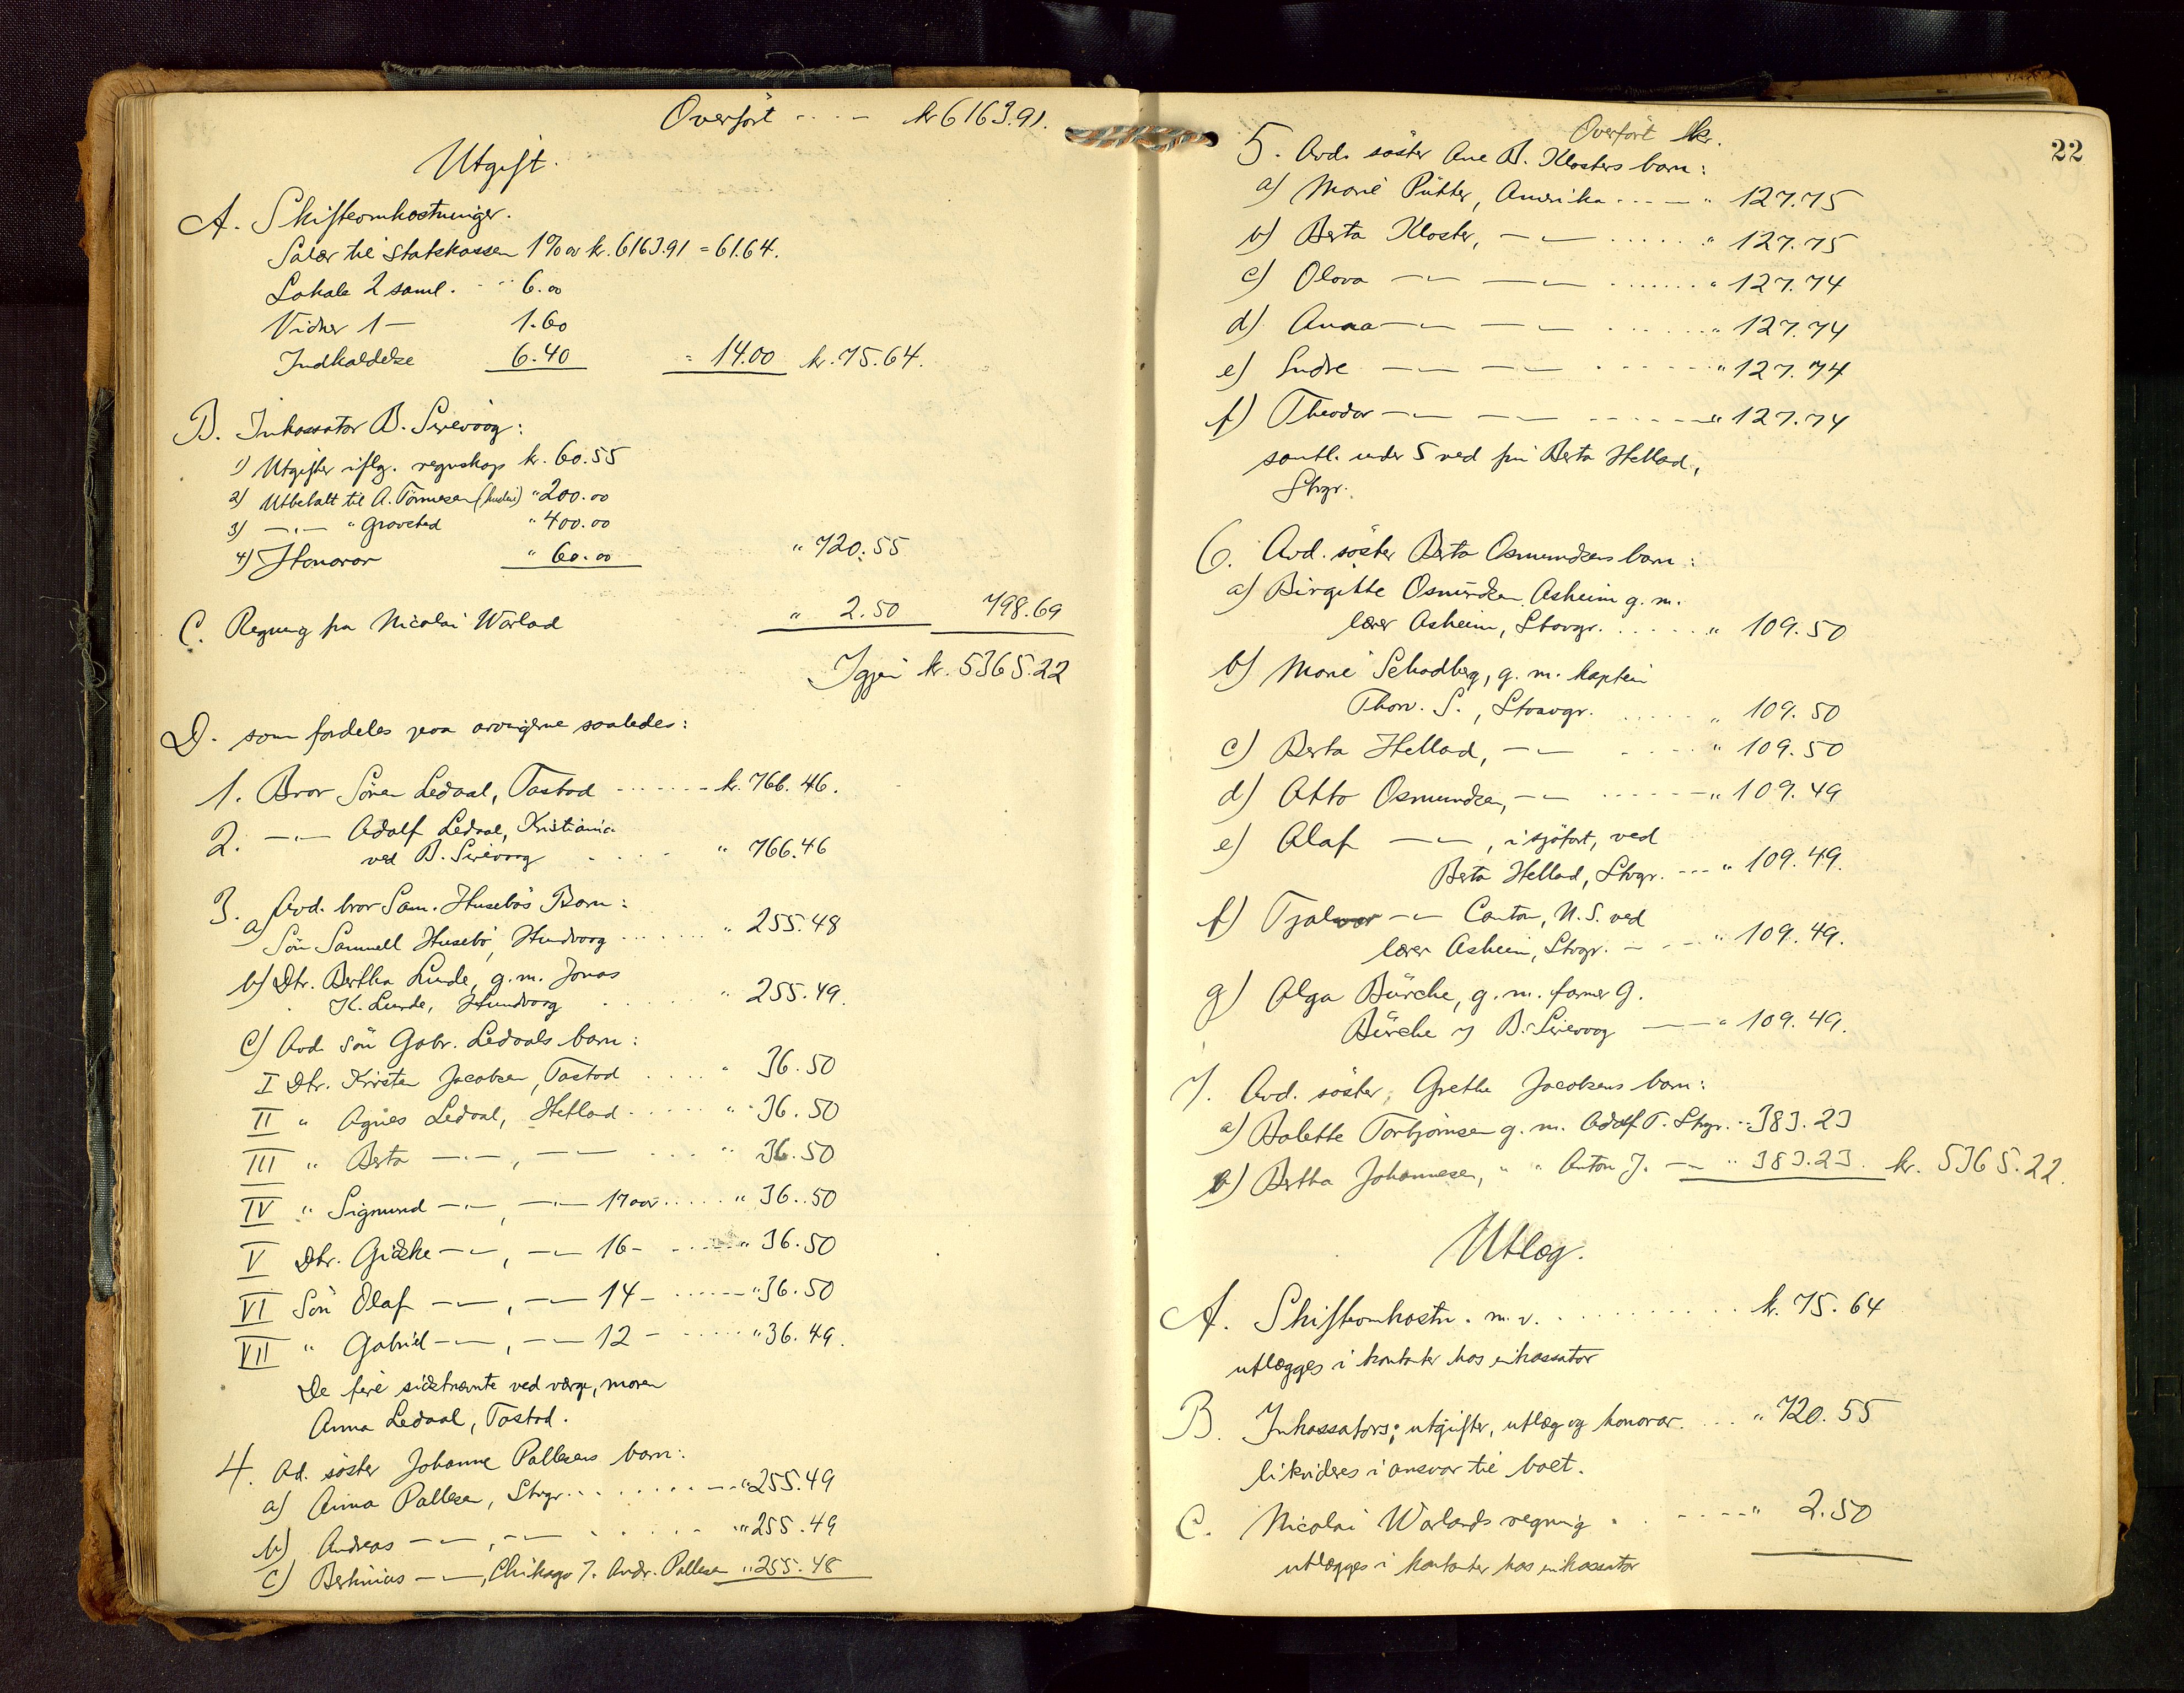 Overført ---- kr 6163.91.
Utgift.
A. Skifteomkostninger.
Salær til Statskassen 1% av kr. 6163.91 = 61.64.
Lokale 2 saml. - - 6.00
Vidner 1 — 1.60
Indkaldelse 6.40 = 14.00 kr. 75.64.
B. Inkassator B. Sirevaag:
1) Utgifter iflg. regnskap kr. 60.55
2) Utbetalt til A. Tönnesen " 200.00
3) —"— " Gravsted " 400.00
4) Honorar " 60.00 " 720.55
C. Regning fra Nicolai Warland " 2.50 798.69
Igjen kr. 5365.22
D. som fordeles paa arvingerne saaledes:
1. Bror Sören Ledaal, Tastad ------ kr. 766.46.
2. —"— Adolf Ledaal, Kristiania
ved B. Sirevaag - - - - " 766.46
3. Avd. bror Sam. Husebös Barn:
a) Sön Samuell Husebö, Hundvaag ...... " 255.48
b) Dtr. Bertha Lunde, g.m. Jonas
K. Lunde, Hundvaag . . . . . " 255.49.
C) Avd. sön Gabr. Ledaals barn:
I Dtr. Kirsten Jacobsen, Tastad . . . . " 36.50
II " Agnes Ledaal, Hetland ..... " 36.50
III " Berta —"—, —"— .... " 36.50
IV " Sigmund —"—, —"— 17 aar ..... " 36.50
V Dtr. Gidske —"—, —"— 16 - ..... " 36.50
VI Sön Olaf —"—, —"— 14 - ...... " 36.50
VII " Gabriel —"—, —"— 12 - ..... " 36.49.
De fire sidstnævnte ved værge, moren
Anna Ledaal, Tastad.
4. Ad. söster Johanne Pallesens barn:
a) Anna Pallesen, Stvgr. ........ " 255.49
b) Andreas —"—, —"— ..... " 255.49
c) Bertinius —"—, Chikago 7. Andr. Pallesen " 255.48
Overført kr.
22
5. Avd. söster Ane B. Klosters barn:
a) Marie Pütter, Amerika ---- " 127.75
b) Berta Kloster, —"— ..... " 127.75
c) Olava —"— —"— ...... " 127.74
d) Anna —"— —"— ...... " 127.74
e) Sudre —"— —"— ...... " 127.74
f) Theodor —"— —"— ------ " 127.74
samtl. under 5 ved fru Berta Hetland,
Stvgr.
6. Avd. söster Berta Osmundsens barn:
a) Birgitte Osmundsen Asheim g. m.
lærer Asheim, Stavgr. ..... " 109.50
b) Marie Schadberg, g. m. kaptein
Thorv. S., Stavgr. ..... " 109.50
c) Berta Hetland, —"— .... " 109.50
d) Otto Osmundsen, —"— ------ " 109.49
e) Olaf —"—, i sjöfart, ved
Berta Hetland, Stvgr. --- " 109.49.
f) Tjalvar —"— Canton, N.S. ved
lærer Asheim, Stvgr. - - - " 109.49.
g) Olga Bürche, g. m. farmer G.
Bürche v/ B. Sirevaag —— " 109.49.
7. Avd. söster, Grethe Jacobsens barn:
a) Balette Torbjörnsen g. m. Adolf T. Stvgr. " 383.23
b) Bertha Johannesen, " " Anton J. —"— " 383.23. kr. 5365.22.
Utlæg.
A. Skifteomkostn. m. v. ......... kr. 75.64
utlægges i kontanter hos inkassator
B. Inkassators utgifter, utlæg og honorar. ... " 720.55
likvideres i ansvar til boet.
C. Nicolai Warlands regning . . ---- " 2.50
utlægges i kontanter hos inkassator